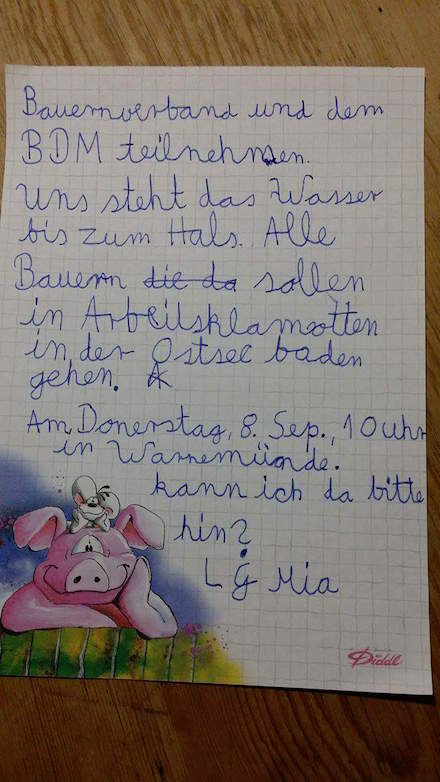 Bauernverband und dem
BDM teilnehmen.
Uns steht das Wasser
bis zum Hals. Alle
Bauern die da sollen
in Arbeitsklamotten
in der Ostsee baden
gehen.
Am Donerstag, 8. Sep., 10 Uhr
in Warnemünde.
kann ich da bitte
hin?
LG Mia
Diddl